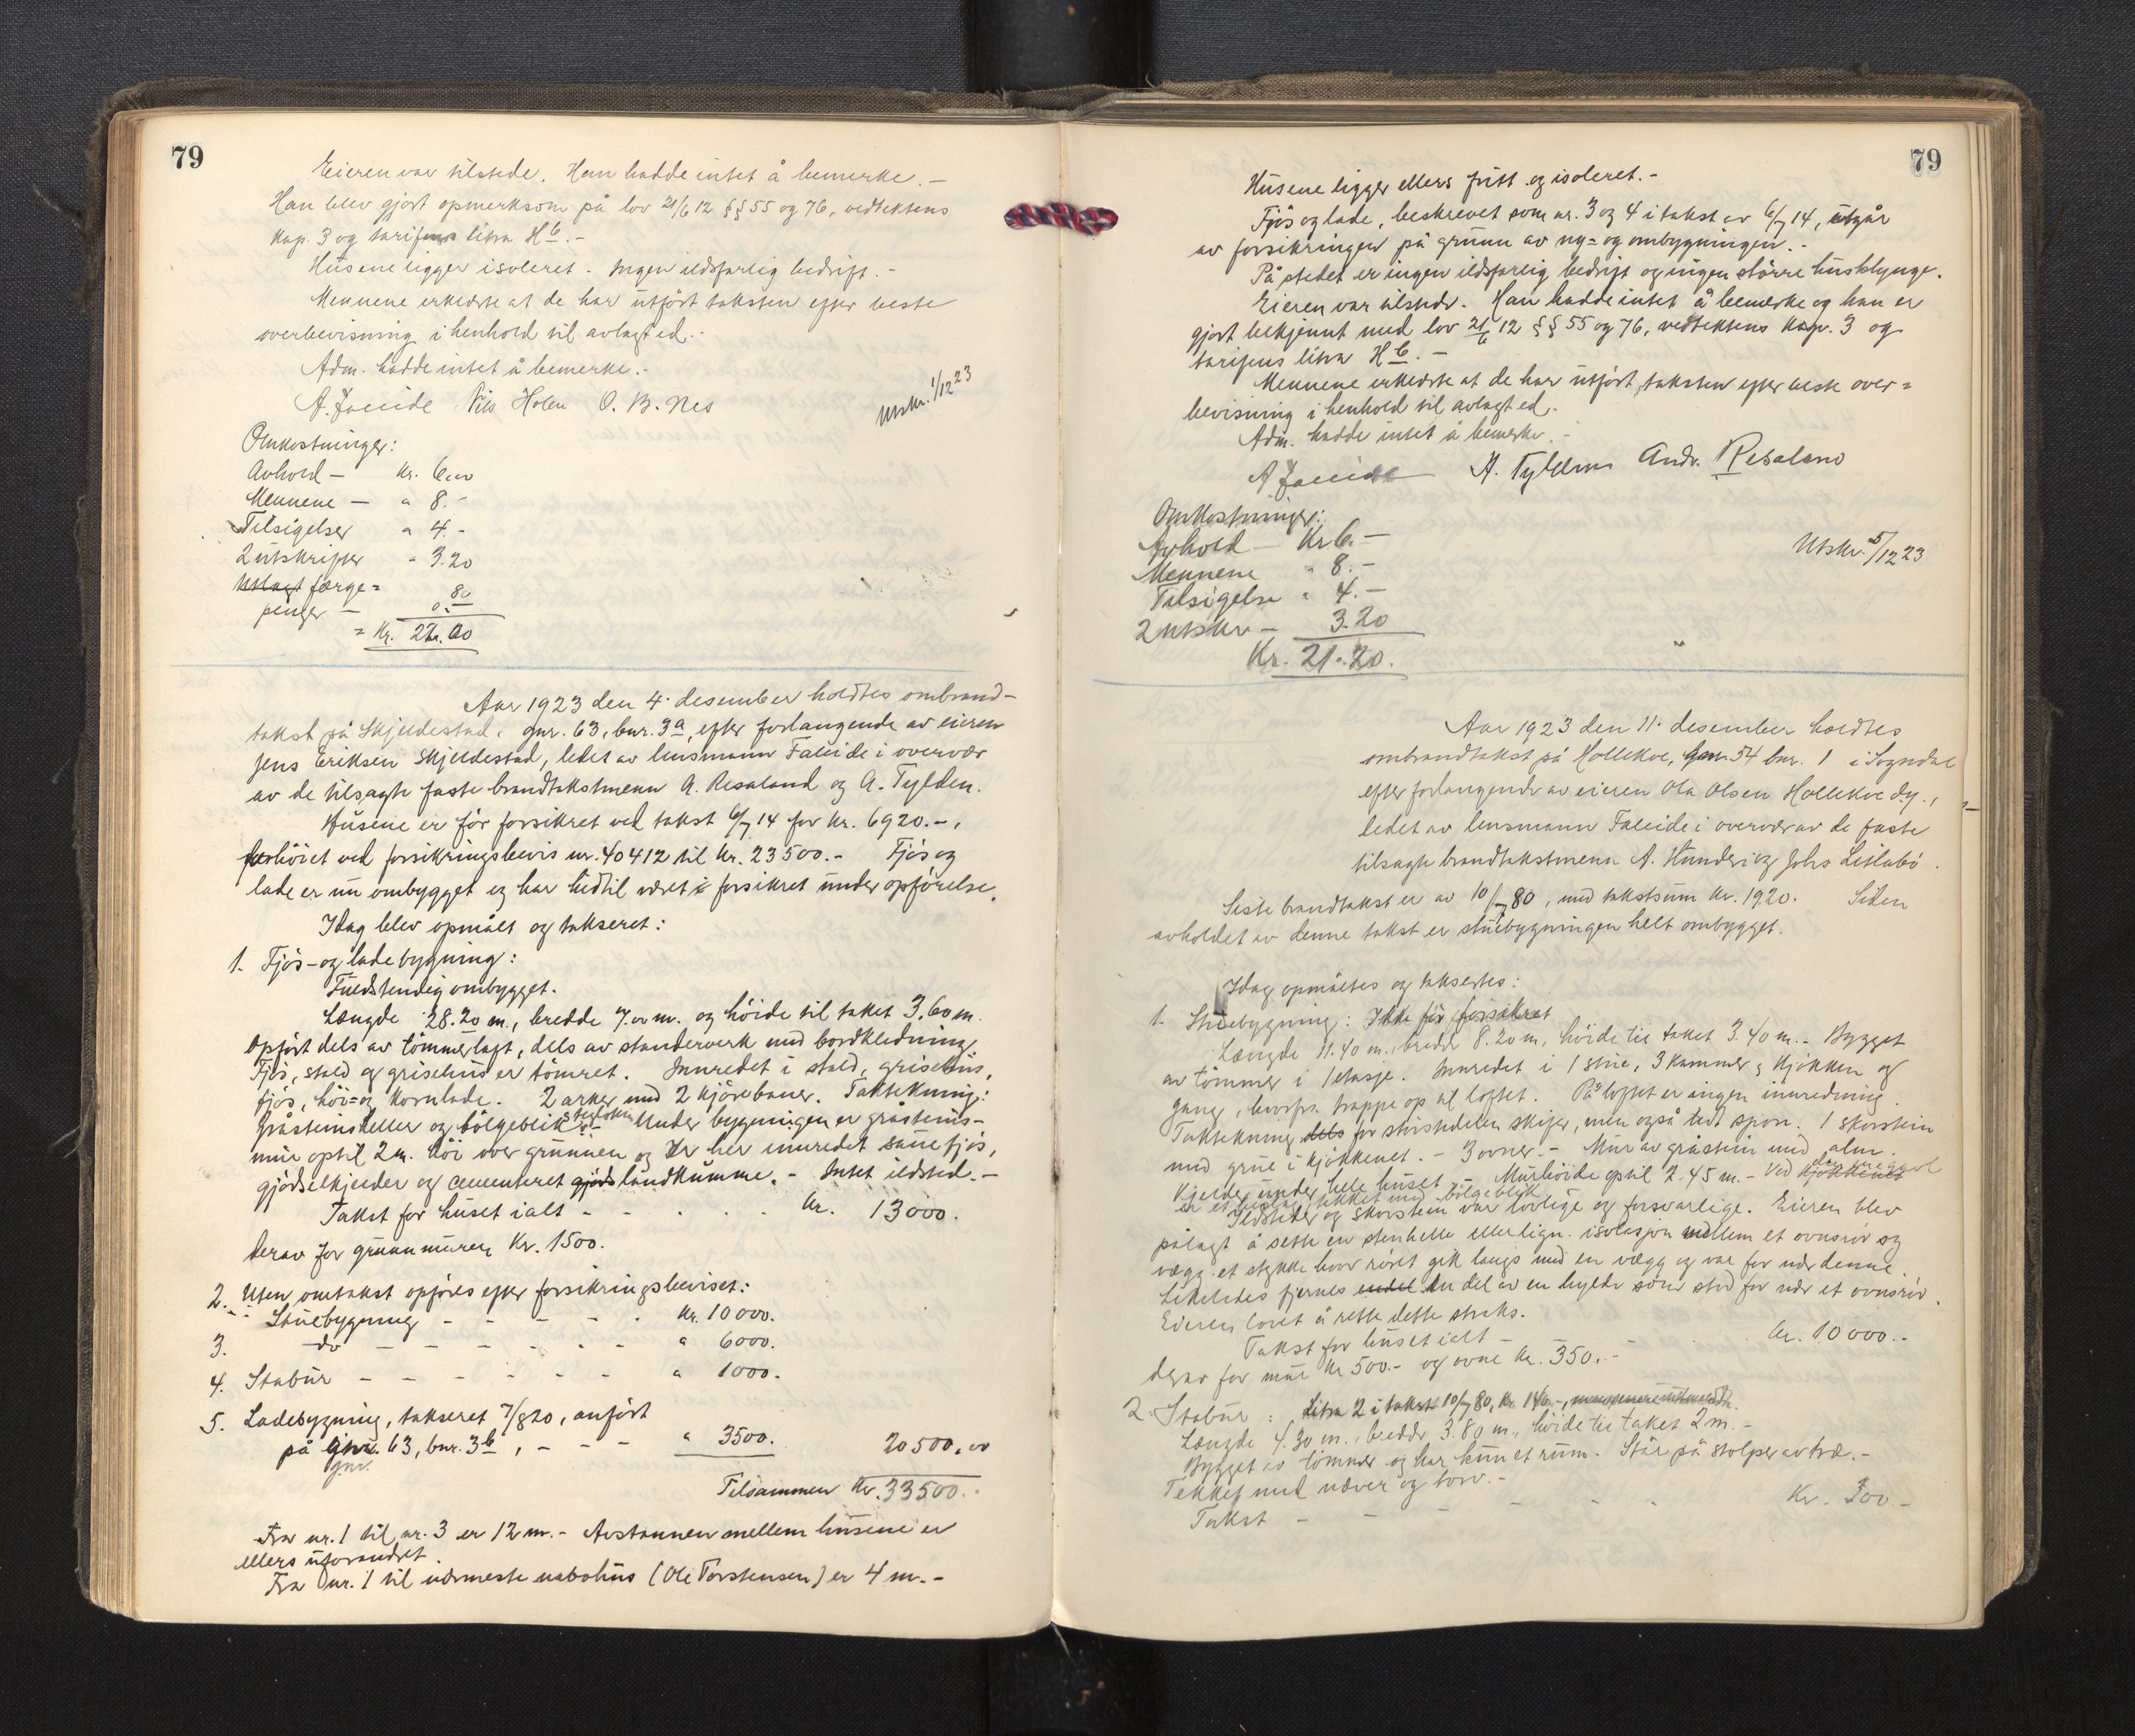 79
Eieren var tilstede. Han hadde intet å bemerke. –
Han blev gjort opmerksom på lov 21/6 12 §§ 55 og 76, vedtektens
kap. 3 og tarifens litra H 6. –
Husene ligger isoleret. Ingen ildsfarlig bedrift. –
Mennene erklærte at de har utført taksten efter beste
overbevisning i henhold til avlagt ed. –
Adm. hadde intet å bemerke. –
A. Faleide Nils Holen O. B. Nes
Utskr. 1/12 23
Omkostninger:
Avhold – Kr. 6.00
Mennene – " 8. –
Tilsigelser " 4. –
2 utskrifter " 3.20
Utlagt færge=
penger – 0.80
= Kr. 22.00
Aar 1923 den 4. desember holdtes ombrand-
takst på Skjeldestad, gnr. 63, bnr. 3a, efter forlangende av eieren
Jens Eriksen Skjeldestad, ledet av lensmann Faleide i overvær
av de tilsagte faste brandtakstmenn A. Resaland og A. Tylden.
Husene er før forsikret ved takst 6/7 14 for kr. 6920. –,
forhöiet ved forsikringsbevis nr. 40412 til kr. 23500. – Fjøs og
lade er nu ombygget og har hidtil været forsikret under opførelse.
Idag blev opmålt og takseret:
1. Fjøs- og ladebygning:
Fuldstendig ombygget.
Længde 28.20 m., bredde 7.00 m. og höide til taket 3.60 m.
Opført dels av tömmerlagt, dels av standerverk med bordklædning.
Fjøs, stald og grisehus er tömret. Innredet i stald, grisehus,
fjøs, höi= og kornlade. 2 arker med 2 kjörebroer. Taktekning:
gråsteinsheller og bölgeblik. – Under bygningen er gråsteins-
mur optil 2 m. höi over grunnen og her innredet sauefjøs,
gjødselkjelder og cementeret gjøds landkumme. – Intet ildsted. –
Takst for huset ialt – – – – kr. 13000.
Derav for grunnmuren kr. 1500.
2. Uten omtakst opføres efter forsikringsbeviset:
Stuebygning – – – – kr. 10000.
3. do – – – – – " 6000.
4. Stabur – – – – – " 1000.
5. Ladebygning, takseret 7/8 20, anført
på gnr. 63, bnr. 3b, – – – " 3500. 20500,00
gnr.
Tilsammen Kr. 33500. –
Fra nr. 1 til nr. 3 er 12 m. – Avstannen mellem husene er
ellers uforandret.
Fra nr. 1 til nærmeste nabohus (Ole Torstensen) er 4 m. –
79
Husene ligger ellers fritt og isoleret. –
Fjös og lade, beskrevet som nr. 3 og 4 i takst av 6/7 14, utgår
av forsikringen på grunn av ny= og ombygningen. –
På stedet er ingen ildsfarlig bedrift og ingen större husklynge.
Eieren var tilstede. Han hadde intet å bemerke og han er
gjort bekjennt med lov 21/6 12 §§ 55 og 76, vedtektens kap. 3 og
tarifens litra H 6. –
Mennene erklærte at de har utført taksten efter beste over=
bevisning i henhold til avlagt ed.
Adm. hadde intet å bemerke. –
A Faleide A. Tylden Andr. Resaland
Omkostninger:
Avhold – Kr 6. –
Mennene " 8. –
Tilsigelse " 4. –
2 utskr – 3.20
Kr. 21.20.
Utskr. 5/12 23
Aar 1923 den 11. desember holdtes
ombrandtakst på Hollekve, gnr 54 bnr. 1 i Sogndal
efter forlangende av eieren Ola Olsen Hollekve d.y.,
ledet av lensmann Faleide i overvær av de faste
tilsagte brandtakstmenn A. Hunderi og Johs Lislebö.
Siste brandtakst er av 10/7 80, med takstsum kr. 1920. Siden
avholdet av denne takst er stuebygningen helt ombygget.
Idag opmåltes og taksertes:
1. Stuebygning: Ikke før forsikret
Længde 11.40 m., bredde 8.20 m, höide til taket 3.40 m. – Bygget
av tömmer i 1 etasje. Innredet i 1 stue, 3 kammer, kjøkken og
gang, hvorfra trappe op til loftet. På loftet er ingen innredning.
Taktekning dels for störstedelen skifer, men også tred spon. 1 skorstein
med grue i kjøkkenet. – 3 ovner. – Mur av gråstein med kalm.
Kjelder under hele huset. – Murhöide optil 2.45 m. – Ved kjøkkenet
er et tilbygg tekket med bölgeblik
Ildsteder og skorstein var lovlige og forsvarlige. Eieren blev
pålagt å sette en stenhelle eller lign. isolasjon mellem et ovnsrör og
vægg et stykke hvor röret gik langs med en vægg og var for nær denne.
Likeledes fjernes endel en del av en hylde som stod for nær et ovnsrör.
Eieren lovet å rette dette straks.
Takst for huset ialt – – – kr. 10000. –
derav for mur kr 500. – og ovne kr. 350. –
2. Stabur: Litra 2 i takst 10/7 80, kr 140. –,
Længde 4.30 m., bredde 3.80 m., höide til taket 2 m. –
Bygget av tömmer og har kun et rum. Står på stolper av træ. –
Tekket med næver og torv. –
Takst – – – – – Kr. 300 –